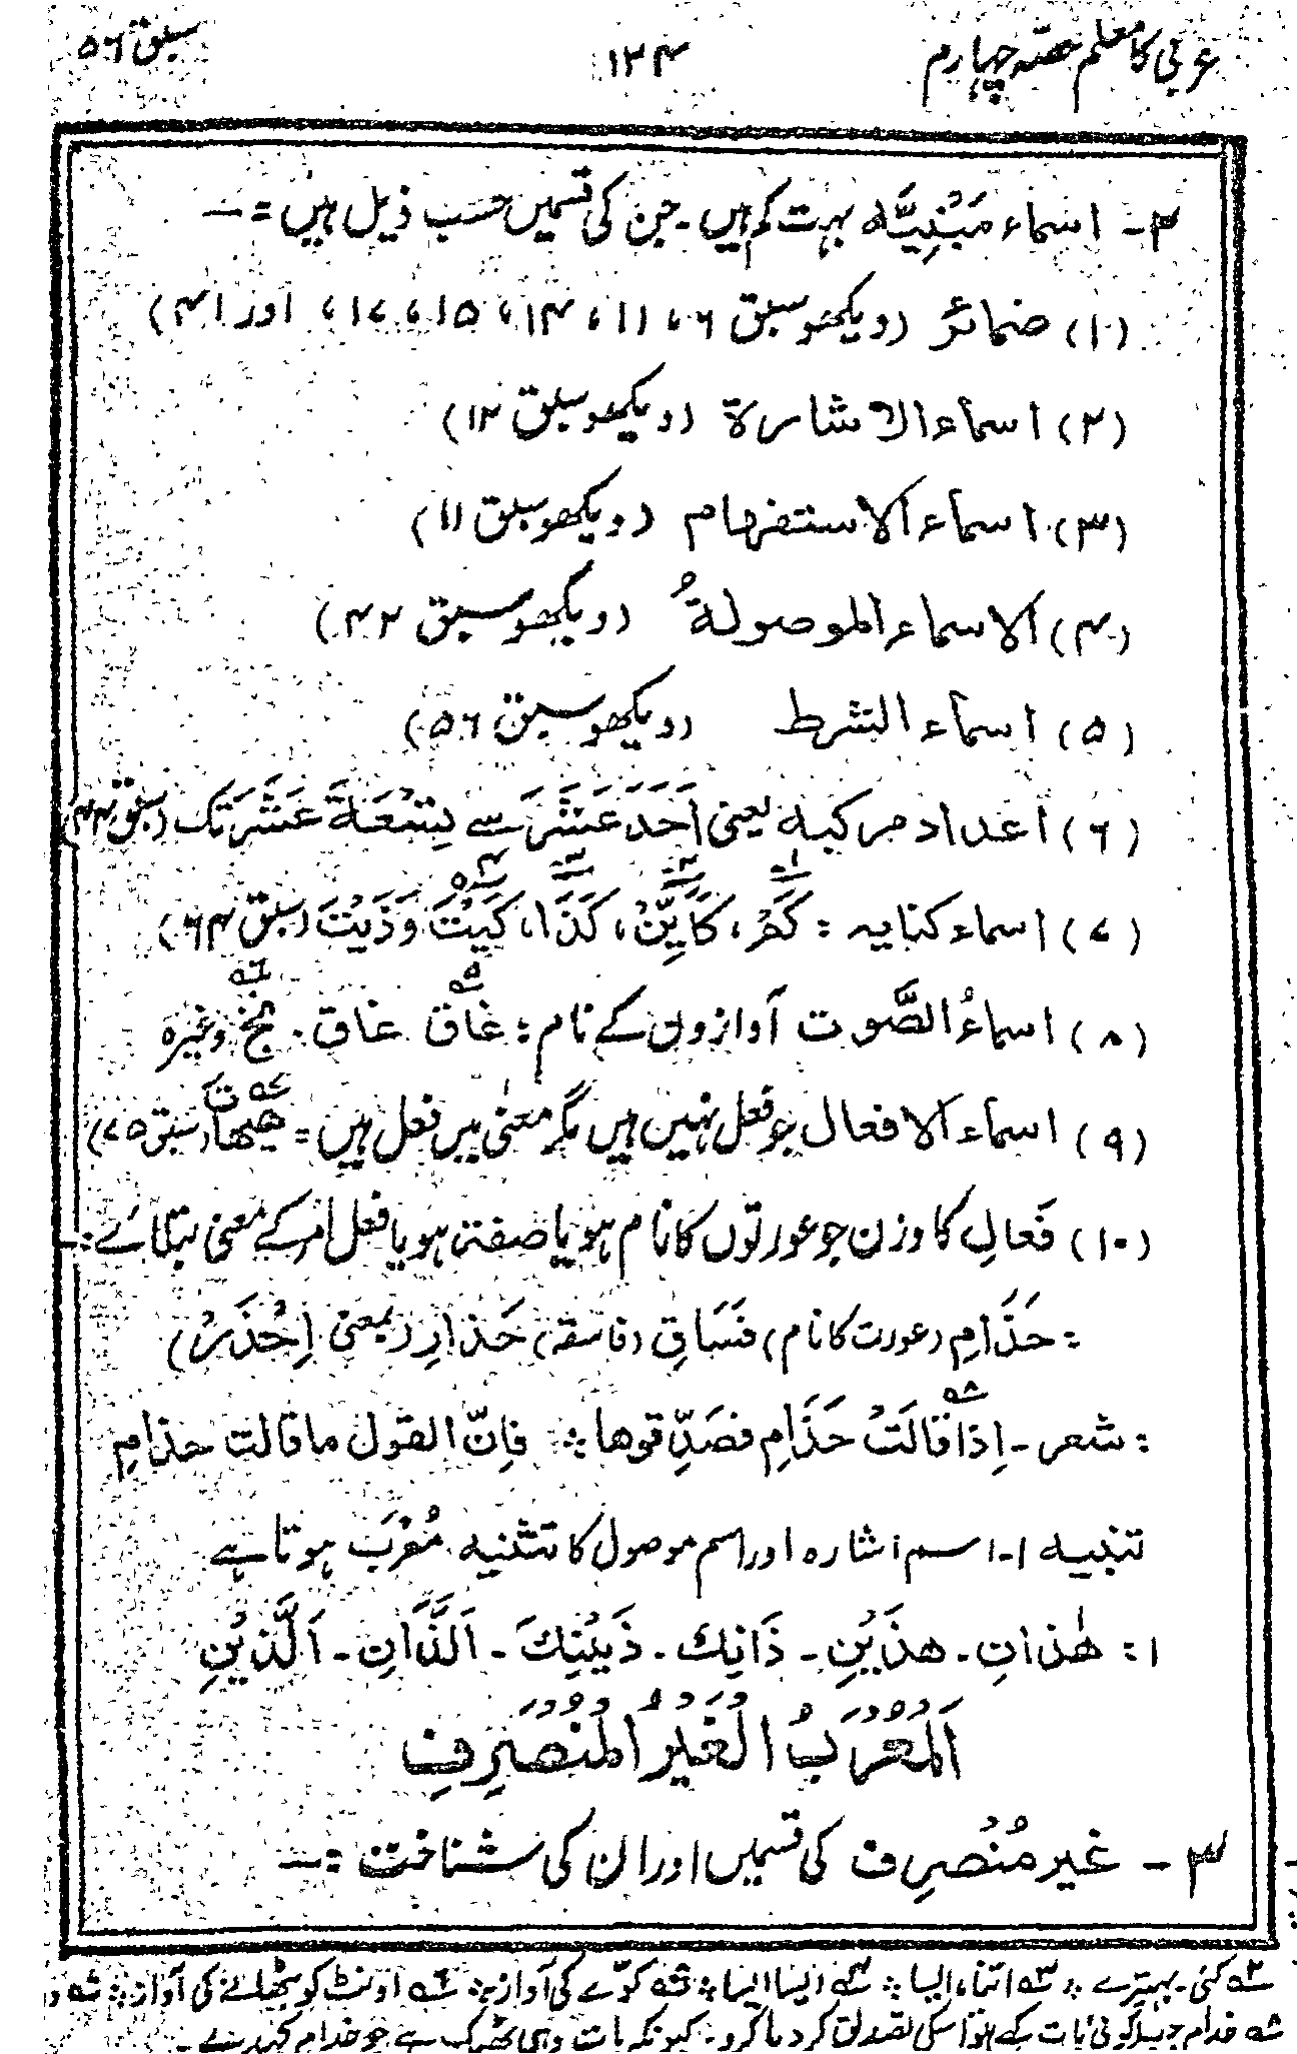 عربی کا معلم حصّہ چہارم ۱۳۴ سبق ۵۶
۳- اسماء مَبْنِیَّہ بہت کم ہیں۔ جن کی قسمیں حسب ذیل ہیں =—
(۱) ضمائر (دیکھو سبق ۶، ۱۱، ۱۴، ۱۵، ۱۷، اور ۴۱)
(۲) اسماء الاشارة (دیکھو سبق ۱۲)
(۳) اسماء الاستفہام (دیکھو سبق ۱۱)
(۴) الاسماء الموصولةُ (دیکھو سبق ۴۲)
(۵) اسماء الشرط (دیکھو سبق ۵۶)
(۶) اعداد مرکبہ یعنی اَحَدَ عَشَرَ سے تِسْعَةَ عَشَرَ تک (سبق ۴۴)
(۷) اسماء کنایہ : کَمْ، کَاَیِّنْ، کَذَا، کَیْتَ وَذَیْتَ (سبق ۶۴)
(۸) اسماءُ الصَّوت آوازوں کے نام : غاق غاق۔ نخ وغیرہ
(۹) اسماء الافعال جو فعل نہیں ہیں مگر معنیٰ میں فعل ہیں = ھیھات (سبق ۷۵)
(۱۰) فَعالِ کا وزن جو عورتوں کا نام ہو یا صفت ہو یا فعل امر کے معنی بتلائے :—
: حَذَامِ (عورت کا نام) فَسَاقِ (فاسقہ) حَذارِ (بمعنی اِحْذَرْ)
: شعر۔ اِذَا قَالَتْ حَذَامِ فصَدِّقوھا ؞ فاِنّ القول ما قالت حذامِ
تنبیہ ۱۔ اسم اشارہ اور اسم موصول کا تثنیہ مُعْرَب ہوتا ہے
: ھٰذانِ۔ ھذَیْنِ۔ ذَانِكَ۔ ذَیْنِكَ۔ اَللَّذَانِ۔ اَللَّذَیْنِ
اَلْمُعْرَبُ الْغَیْرُ الْمُنْصَرِفِ
۴- غیر مُنْصَرِف کی قسمیں اور ان کی شناخت =—
۲؎ کئی۔ بہتیرے ؞ ۳؎ اتنا، ایسا ؞ ۴؎ ایسا ایسا ؞ ۵؎ کوّے کی آواز ؞ ۶؎ اونٹ کو بٹھلانے کی آواز ؞
۸؎ حذام جب کوئی بات کہے تو اس کی تصدیق کر دیا کرو۔ کیونکہ بات وہی ٹھیک ہے جو حذام کہدے۔